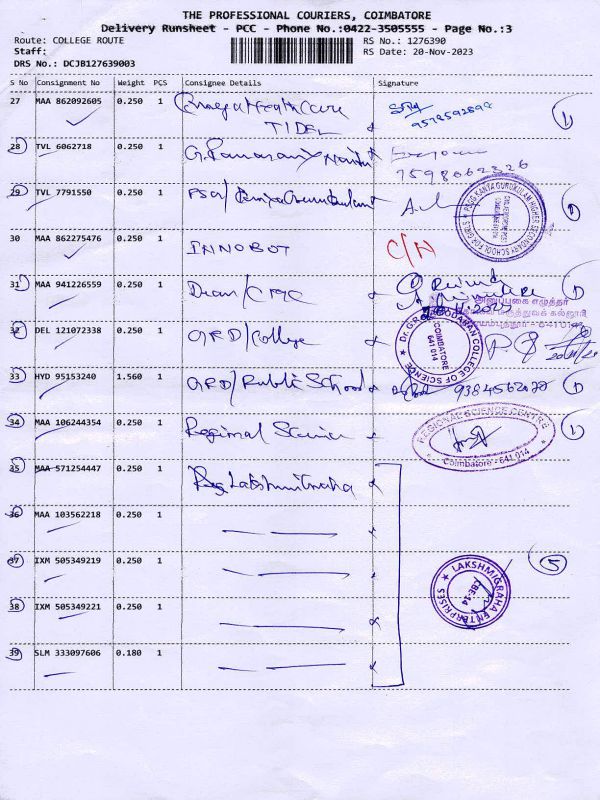 THE PROFESSIONAL COURIERS, COIMBATORE
Delivery Runsheet - PCC - Phone No.:0422-3505555 - Page No.:3
Route: COLLEGE ROUTE
RS No.: 1276390
Staff:
RS Date: 20-Nov-2023
DRS No.: DCJB127639003
S No Consignment No Weight PCS Consignee Details Signature
27 MAA 862092605 0.250 1
TIDEL
28 TVL 6062718 0.250 1
29 TVL 7791550 0.250 1
PSGG KANYA GURUKULAM HIGHER SECONDARY SCHOOL FOR GIRLS
30 MAA 862275476 0.250 1 INNOBOT C/N
31 MAA 941226559 0.250 1 Dean/
32 DEL 121072338 0.250 1 GRD/College
COLLEGE OF SCIENCE
COIMBATORE
641 014
33 HYD 95153240 1.560 1 GRD/Public School 9384562022
34 MAA 106244354 0.250 1 Regional Science
REGIONAL SCIENCE CENTRE
Coimbatore - 641 014
35 MAA 571254447 0.250 1 Lakshmigraha
36 MAA 103562218 0.250 1
37 IXM 505349219 0.250 1 5
LAKSHMIGRAHA ENTERPRISES
CBE-14
38 IXM 505349221 0.250 1
39 SLM 333097606 0.180 1